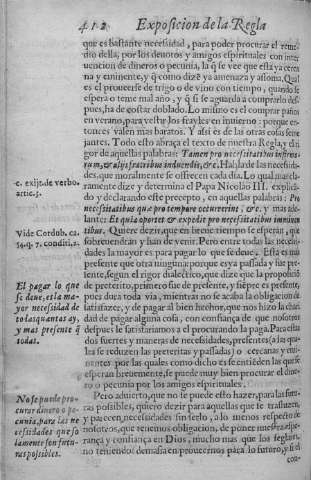 412 Exposicion de la Regla
que es bastante necessidad, para poder procurar el reme
dio della, por los deuotos y amigos espirituales con inter
uencion de dineros o pecunia, la q̃ se vee que està ya cerca
na y eminente, y q̃ como dizẽ ya amenaza y assoma, Qual
es el proueerse de trigo o de vino con tiempo, quando se
espera o teme mal año, y q̃ si se aguarda a comprarlo des-
pues, ha de costar doblado. Lo mismo es el comprar paños
en verano, para vestir los frayles en inuierno: porque en-
tonces valen mas baratos. Y assi es de las otras cosas seme
jantes. Todo esto abraça el texto de nuestra Regla, en
rigor de aquellas palabras: Tamen pro necessitatibus infirmo-
rum, & alijs fratribus induendis, &c. Hablando de las necessida-
des, que moralmente se ofrecen cada dia. Lo qual mas cla-
ramente dize y determina el Papa Nicolao III. explicã-
do y declarando este precepto, en aquellas palabras: Pro
necessitatibus que pro tempore occurrerint, &c. y mas ade-
lante: Et quia oportet & expedit pro necessitatibus imminen
tibus. Quiere dezir, que en breue tiempo se esperan, que
sobreuendràn y han de venir. Pero entre todas las necessi-
dades la mayor es para pagar lo que se deue. Esta es mas
presente que otra ninguna: porque es ya passada y fue pre-
sente, segun el rigor dialectico, que dize que la proposiciõ
de preterito, primero fue de presente, y siẽpre es presente,
pues dura toda via, mientras no se acaba la obligacion de
satisfazer, y de pagar al bien hechor, que nos hizo la chari-
dad de pagar alguna cosa, con confiança de que nosotros
despues le satisfariamos a el procurando la paga. Para estas
dos fuertes y maneras de necessidades, presentes (a las qua
les se reduzen las preteritas y passadas) o cercanas y emi-
nentes por las quales como dicho es se entiẽden las que se
esperan breuemente, se puede muy bien procurar el dine
ro o pecunia por los amigos espirituales.
Pero aduierto, que no se puede esto hazer, para las futu-
ras possibles, quiero dezir para aquellas que se trasluzen
y parecen necessidades sin serlo, a lo menos respecto de
nosotros, que tenemos obligacion, de poner nuestra espe-
rança y confiança en Dios, mucho mas que los seglares,
no teniendo demasia en proueernos para lo futuro, y si es
con-
c. exijt. de verbo.
artic. 5.
Vide Cordub. ca.
4. q. 7. conditi. 2.
El pagar lo que
se deue, es la ma-
yor necessidad de
todas quantas ay,
y mas presente q̃
todas.
No se puede pro-
curar dinero o pe-
cunia, para las ne
cessidades que so
lamente son futu-
ras possibles.